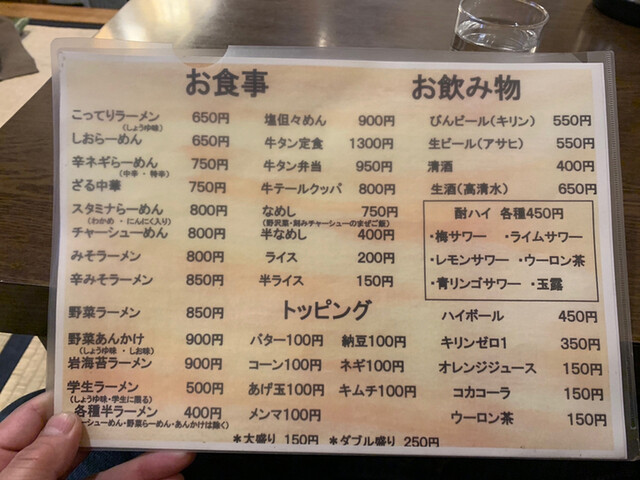 お食事
こってりラーメン 650円
(しょうゆ味)
しおらーめん 650円
辛ネギらーめん 750円
(中辛・特辛)
ざる中華 750円
スタミナらーめん 800円
(わかめ・にんにく入り)
チャーシューめん 800円
みそラーメン 800円
辛みそラーメン 850円
野菜ラーメン 850円
野菜あんかけ 900円
(しょうゆ味・しお味)
岩海苔ラーメン 900円
学生ラーメン 500円
(しょうゆ味・学生に限る)
各種半ラーメン 400円
ーシューめん・野菜らーめん・あんかけは除く)
塩但々めん 900円
牛タン定食 1300円
牛タン弁当 950円
牛テールクッパ 800円
なめし 750円
(野沢菜・刻みチャーシューのまぜご飯)
半なめし 400円
ライス 200円
半ライス 150円
トッピング
バター100円 納豆100円
コーン100円 ネギ100円
あげ玉100円 キムチ100円
メンマ100円
*大盛り 150円 *ダブル盛り 250円
お飲み物
びんビール(キリン) 550円
生ビール(アサヒ) 550円
清酒 400円
生酒(高清水) 650円
酎ハイ 各種450円
・梅サワー ・ライムサワー
・レモンサワー ・ウーロン茶
・青リンゴサワー ・玉露
ハイボール 450円
キリンゼロ1 350円
オレンジジュース 150円
コカコーラ 150円
ウーロン茶 150円